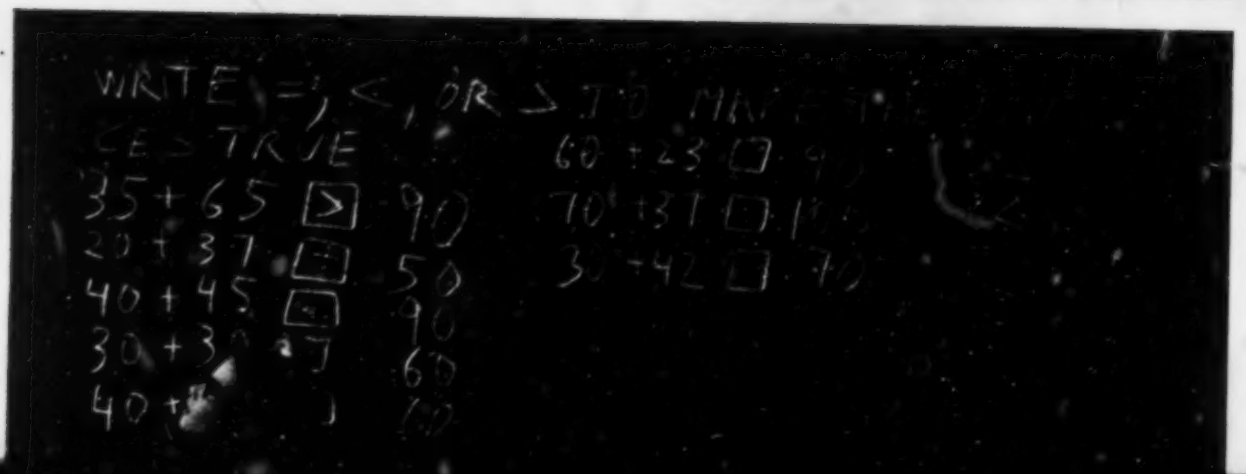 WRITE =, <, OR > TO MAKE THE
CE > TRUE
35 + 65 > 90
20 + 37 □ 50
40 + 45 □ 90
30 + 30 60
40 +
60 + 23 □ 90
70 + 31 □ 100
30 + 42 □ 70